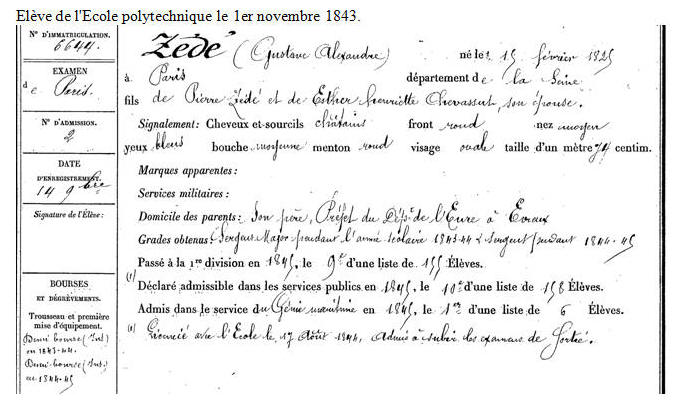 Elève de l'Ecole polytechnique le 1er novembre 1843.
N° D'IMMATRICULATION.
6644.
EXAMEN
de Paris.
N° D'ADMISSION.
2
DATE
D'ENREGISTREMENT.
14 9bre
Signature de l'Élève:
BOURSES
ET DÉGRÈVEMENTS.
Trousseau et première
mise d'équipement.
Demi bourse (Int)
en 1843-44.
Demi-bourse (Int.)
en 1844-45
Zédé (Gustave Alexandre) né le 15 février 1825
à Paris département de la Seine
fils de Pierre Zédé et de Esther Henriette Chevassut, son épouse.
Signalement: Cheveux et sourcils châtains front rond nez moyen
yeux bleus bouche moyenne menton rond visage ovale taille d'un mètre 74 centim.
Marques apparentes:
Services militaires:
Domicile des parents: Son père, Préfet du Dépt de l'Eure à Evreux
Grades obtenus: Sergent-Major pendant l'année scolaire 1843-44 & Sergent pendant 1844-45
Passé à la 1re division en 1845, le 9e d'une liste de 155 Élèves.
(1) Déclaré admissible dans les services publics en 1845, le 10e d'une liste de 158 Élèves.
Admis dans le service du Génie maritime en 1845, le 1er d'une liste de 6 Élèves.
(1) Licencié avec l'Ecole le 17 Août 1844, Admis à subir les examens de Sortie.